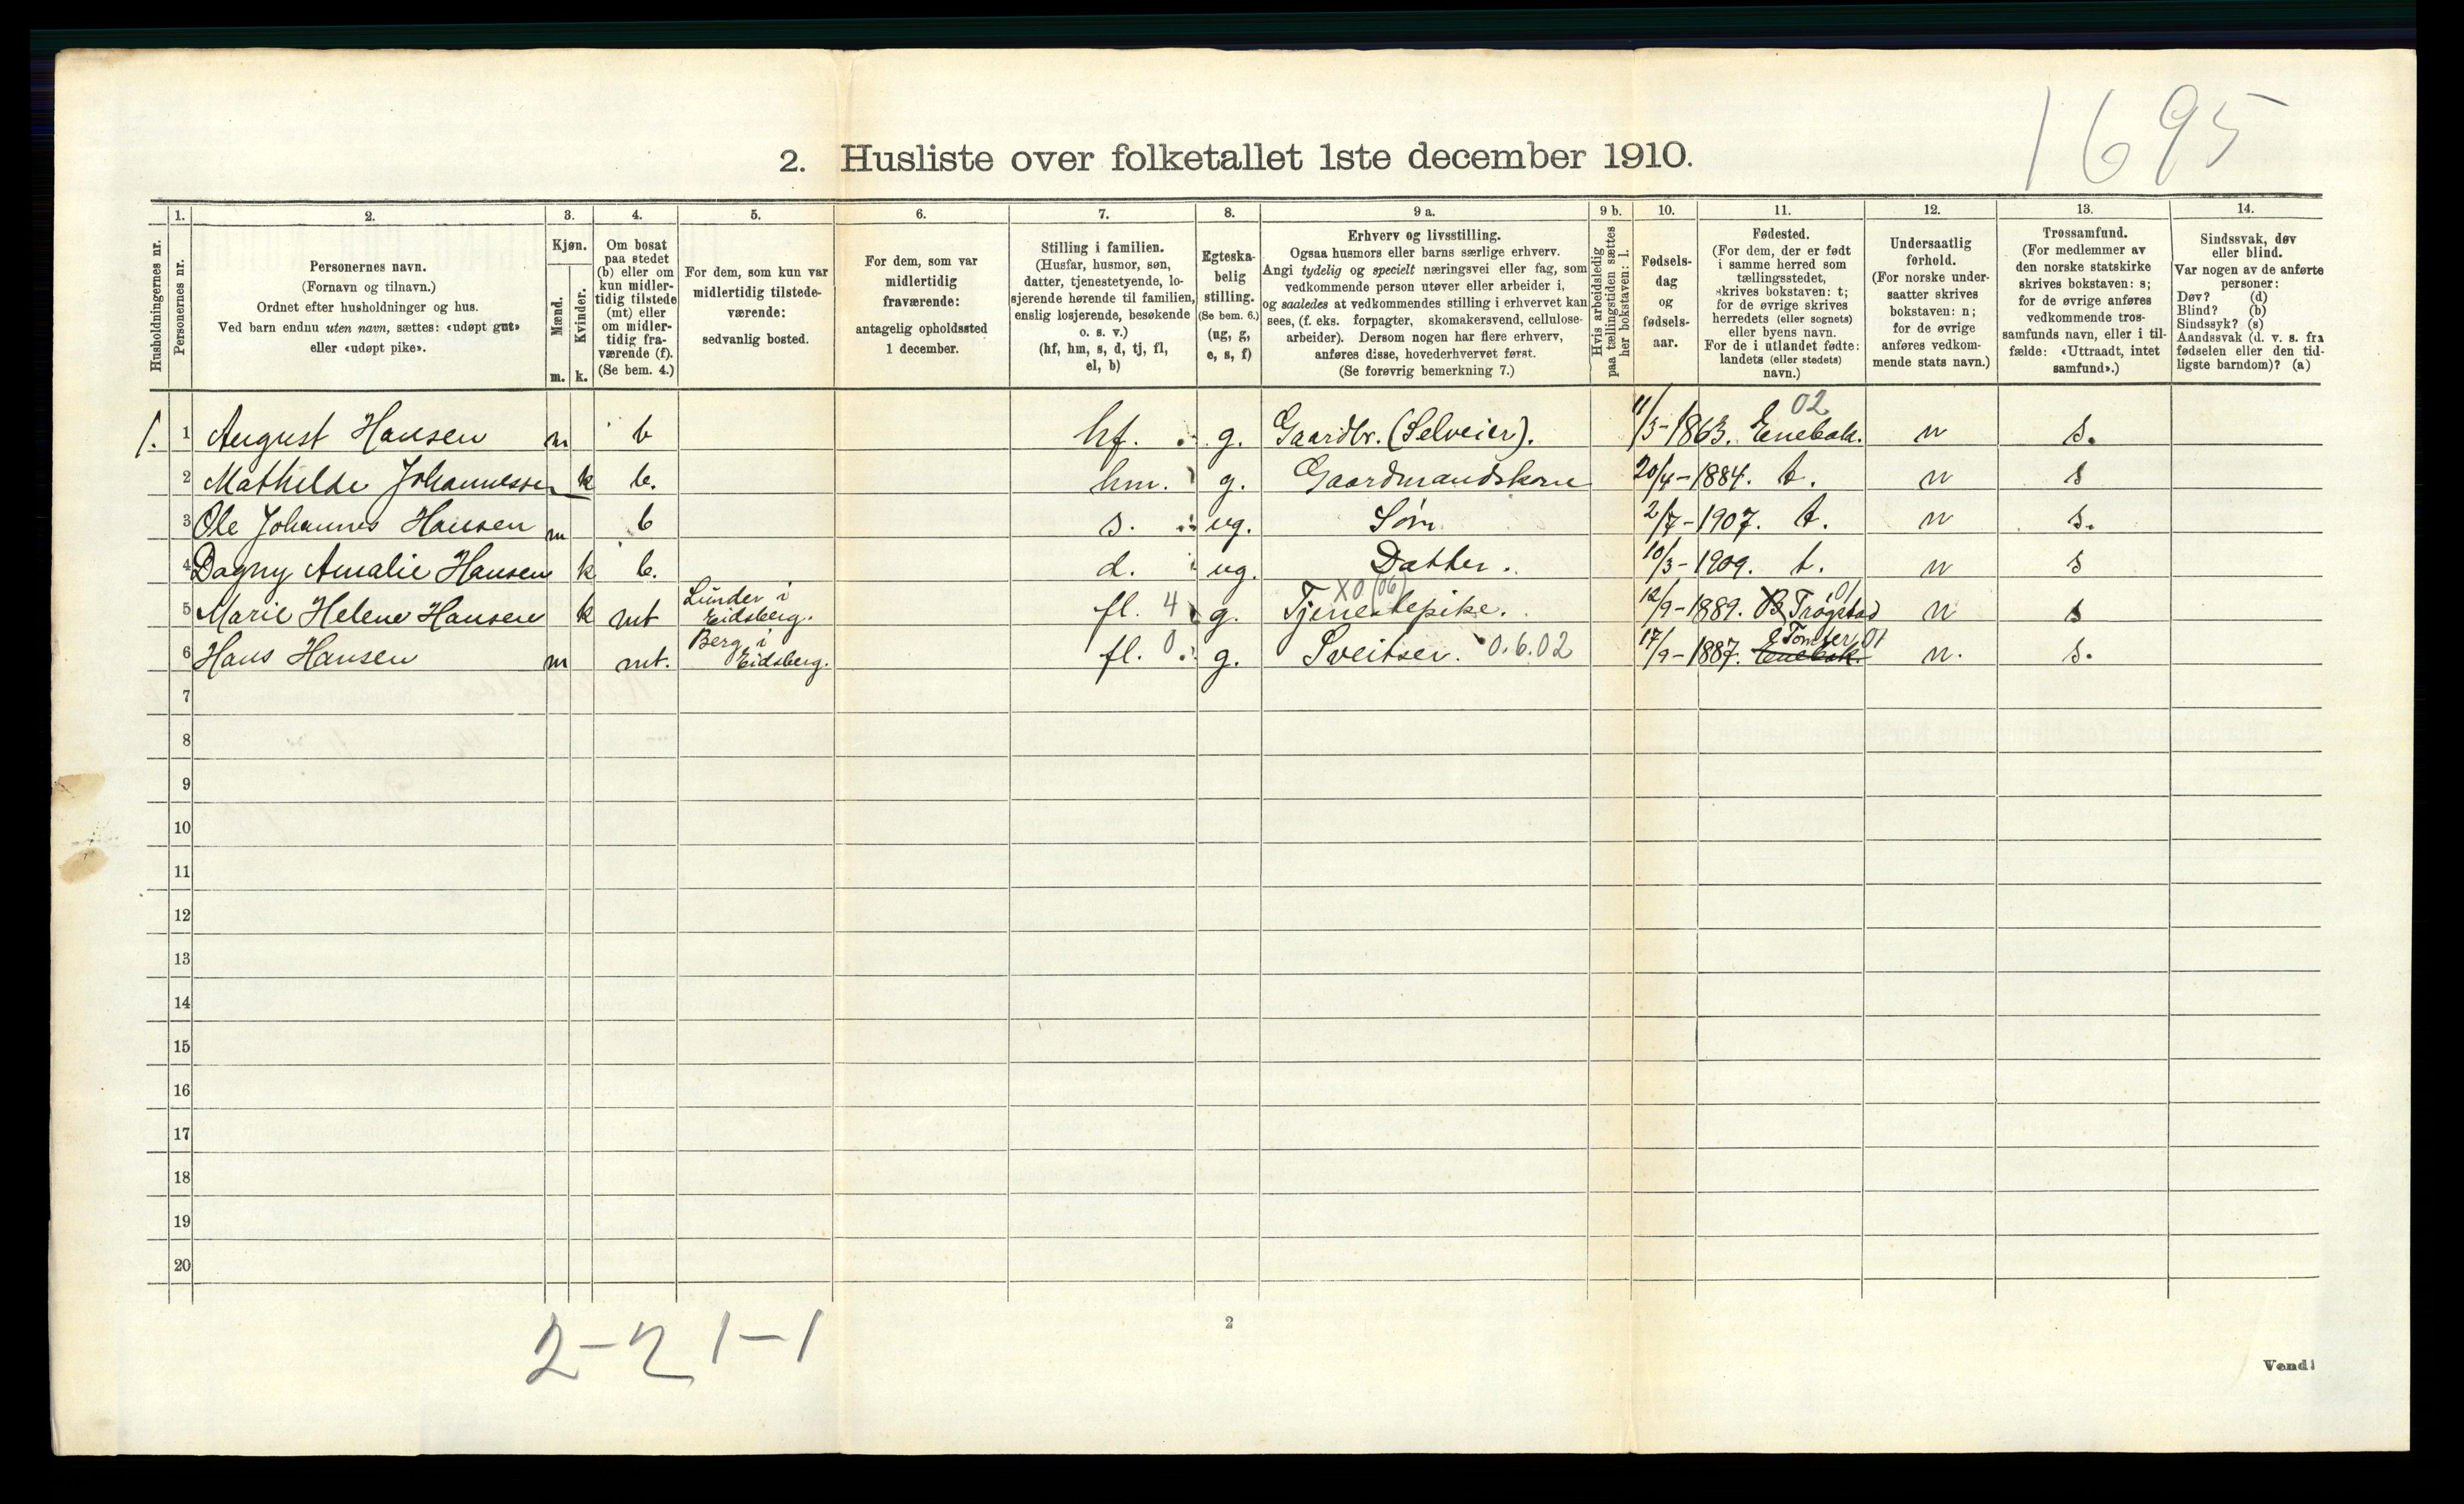 1695
2. Husliste over folketallet 1ste december 1910.
Husholdningernes nr.
1. Personernes nr.
2. Personernes navn.
(Fornavn og tilnavn.)
Ordnet efter husholdninger og hus.
Ved barn endnu uten navn, sættes: «udøpt gut»
eller «udøpt pike».
3. Kjøn.
Mænd. m.
Kvinder. k.
4. Om bosat
paa stedet
(b) eller om
kun midler-
tidig tilstede
(mt) eller
om midler-
tidig fra-
værende (f).
(Se bem. 4.)
5. For dem, som kun var
midlertidig tilstede-
værende:
sedvanlig bosted.
6. For dem, som var
midlertidig
fraværende:
antagelig opholdssted
1 december.
7. Stilling i familien.
(Husfar, husmor, søn,
datter, tjenestetyende, lo-
sjerende hørende til familien,
enslig losjerende, besøkende
o. s. v.)
(hf, hm, s, d, tj, fl,
el, b)
8. Egteska-
belig
stilling.
(Se bem. 6.)
(ug, g,
e, s, f)
9 a. Erhverv og livsstilling.
Ogsaa husmors eller barns særlige erhverv.
Angi tydelig og specielt næringsvei eller fag, som
vedkommende person utøver eller arbeider i,
og saaledes at vedkommendes stilling i erhvervet kan
sees, (f. eks. forpagter, skomakersvend, cellulose-
arbeider). Dersom nogen har flere erhverv,
anføres disse, hovederhvervet først.
(Se forøvrig bemerkning 7.)
9 b. Hvis arbeidsledig
paa tællingstiden sættes
her bokstaven: l.
10. Fødsels-
dag
og
fødsels-
aar.
11. Fødested.
(For dem, der er født
i samme herred som
tællingsstedet,
skrives bokstaven: t;
for de øvrige skrives
herredets (eller sognets)
eller byens navn.
For de i utlandet fødte:
landets (eller stedets)
navn.)
12. Undersaatlig
forhold.
(For norske under-
saatter skrives
bokstaven: n;
for de øvrige
anføres vedkom-
mende stats navn.)
13. Trossamfund.
(For medlemmer av
den norske statskirke
skrives bokstaven: s;
for de øvrige anføres
vedkommende tros-
samfunds navn, eller i til-
fælde: «Uttraadt, intet
samfund».)
14. Sindssvak, døv
eller blind.
Var nogen av de anførte
personer:
Døv? (d)
Blind? (b)
Sindssyk? (s)
Aandssvak (d. v. s. fra
fødselen eller den tid-
ligste barndom)? (a)
02
1. 1 August Hansen m b hf. g. Gaardbr. (Selveier). 11/3-1863. Enebak. n s.
2 Mathilde Johannessen k b. hm. g. Gaardmandskone 20/4-1884. t. n s
3 Ole Johannes Hansen m b s. ug. Søn 2/7-1907. t. n s.
4 Dagny Amalie Hansen k b. d. ug. Datter. 10/3-1909. t. n s
Lunder i X0 (06) 01
5 Marie Helene Hansen k mt Eidsberg. fl. 4 g. Tjenestepike. 12/9-1889. Trøgstad n s
Berg i Tomter 01
6 Hans Hansen m mt. Eidsberg. fl. 0 g. Sveitser. 0.6.02 17/9-1887. Enebak. n. s.
7
8
9
10
11
12
13
14
15
16
17
18
19
20
2-2 1-1
2
Vend!